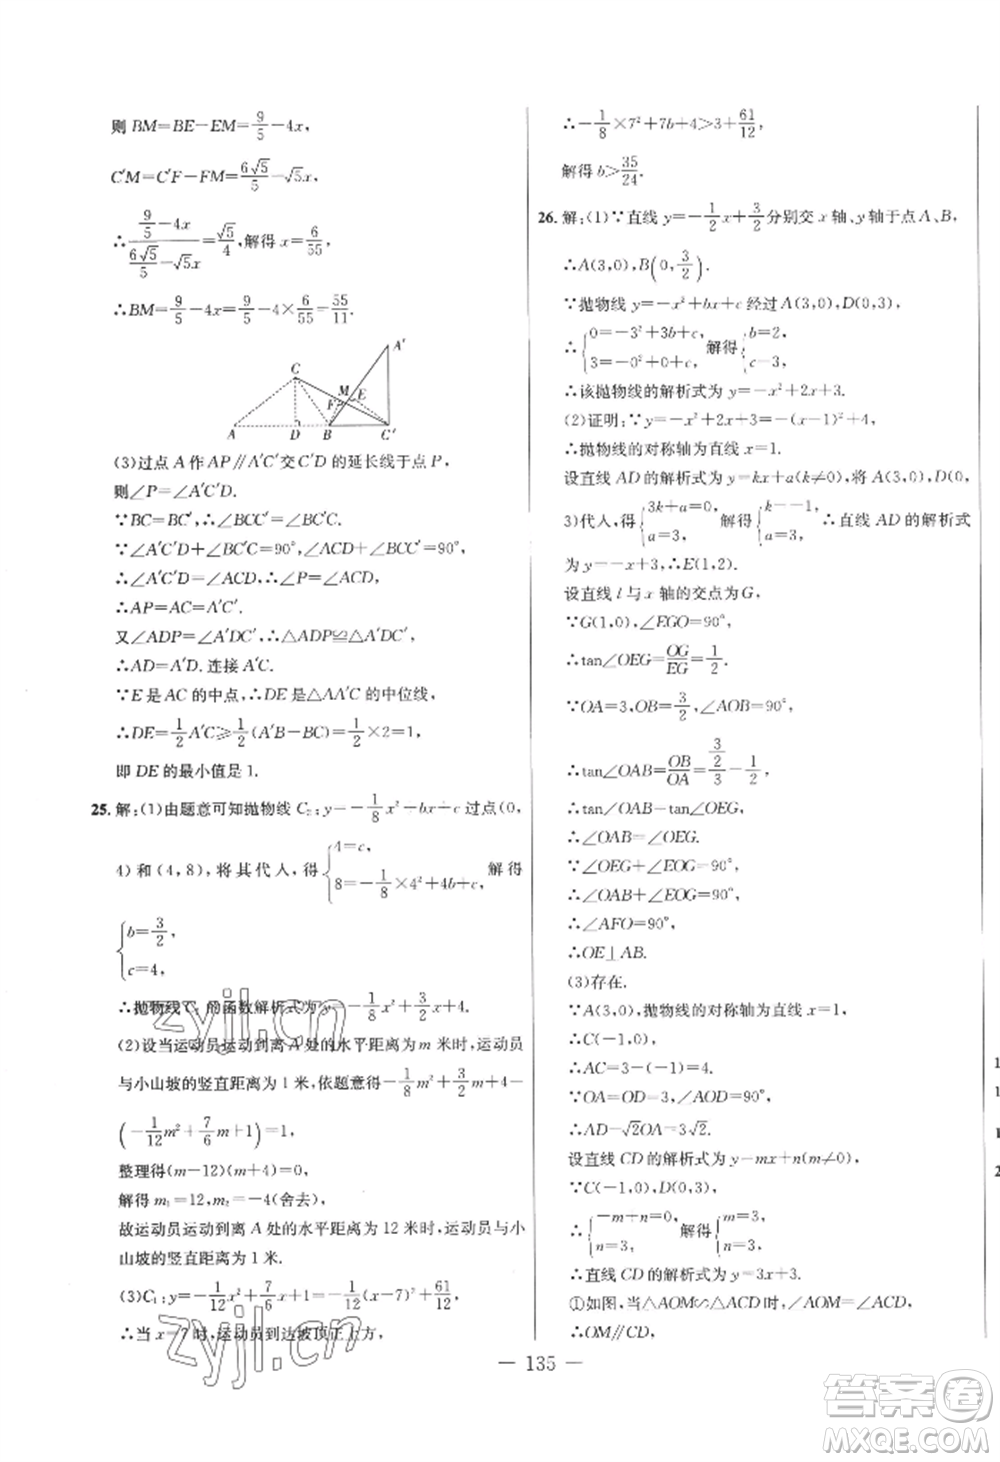 则 BM=BE−EM=9/5−4x,
C′M=C′F−FM=6√5/5−√5x,
∴(9/5−4x)/(6√5/5−√5x)=√5/4,解得 x=6/55,
∴BM=9/5−4x=9/5−4×6/55=55/11.
A′
C
M
F
E
A
D
B
C′
(3)过点 A 作 AP∥A′C′交 C′D 的延长线于点 P,
则∠P=∠A′C′P.
∵BC=BC′,∴∠BCC′=∠BC′C.
∵∠A′C′D+∠BC′C=90°,∠ACD+∠BCC′=90°,
∴∠A′C′D=∠ACD,∴∠P=∠ACD,
∴AP=AC=A′C′.
又∠ADP=∠A′DC′,∴△ADP≌△A′DC′,
∴AD=A′D. 连接 A′C.
∵E 是 AC 的中点,∴DE 是△AA′C 的中位线,
∴DE=1/2A′C≥1/2(A′B−BC)=1/2×2=1,
即 DE 的最小值是 1.
25.解:(1)由题意可知抛物线 C₂:y=−1/8x²+bx+c 过点(0,
4)和(4,8),将其代入,得{4=c, 8=−1/8×4²+4b+c, 解得
{b=3/2, c=4,
∴抛物线 C₂ 的函数解析式为 y=−1/8x²+3/2x+4.
(2)设当运动员运动到离 A 处的水平距离为 m 米时,运动员
与小山坡的竖直距离为 1 米,依题意得−1/8m²+3/2m+4−
(−1/12m²+7/6m+1)=1,
整理得(m−12)(m+4)=0,
解得 m₁=12,m₂=−4(舍去),
故运动员运动到离 A 处的水平距离为 12 米时,运动员与小
山坡的竖直距离为 1 米.
(3)C₁:y=−1/12x²+7/6x+1=−1/12(x−7)²+61/12,
∴当 x=7 时,运动员到达坡顶正上方,
∴−1/8×7²+7b+4>3+61/12,
解得 b>35/24.
26.解:(1)∵直线 y=−1/2x+3/2分别交 x 轴、y 轴于点 A、B,
∴A(3,0),B(0,3/2).
∵抛物线 y=−x²+bx+c 经过 A(3,0),D(0,3),
∴{0=−3²+3b+c, 3=−0²+0+c, 解得{b=2, c=3,
∴该抛物线的解析式为 y=−x²+2x+3.
(2)证明:∵y=−x²+2x+3=−(x−1)²+4,
∴抛物线的对称轴为直线 x=1.
设直线 AD 的解析式为 y=kx+a(k≠0),将 A(3,0),D(0,
3)代入,得{3k+a=0, a=3, 解得{k=−1, a=3, ∴直线 AD 的解析式
为 y=−x+3,∴E(1,2).
设直线 l 与 x 轴的交点为 G,
∵G(1,0),∠EGO=90°,
∴tan∠OEG=OG/EG=1/2.
∵OA=3,OB=3/2,∠AOB=90°,
∴tan∠OAB=OB/OA=(3/2)/3=1/2,
∴tan∠OAB=tan∠OEG,
∴∠OAB=∠OEG.
∵∠OEG+∠EOG=90°,
∴∠OAB+∠EOG=90°,
∴∠AFO=90°,
∴OE⊥AB.
(3)存在.
∵A(3,0),抛物线的对称轴为直线 x=1,
∴C(−1,0),
∴AC=3−(−1)=4.
∵OA=OD=3,∠AOD=90°,
∴AD=√2OA=3√2.
设直线 CD 的解析式为 y=mx+n(m≠0),
∵C(−1,0),D(0,3),
∴{−m+n=0, n=3, 解得{m=3, n=3,
∴直线 CD 的解析式为 y=3x+3.
①如图,当△AOM∽△ACD时,∠AOM=∠ACD,
∴OM∥CD,
— 135 —
zyjl.cn
zyjl.cn
答案圈
MXQE.COM